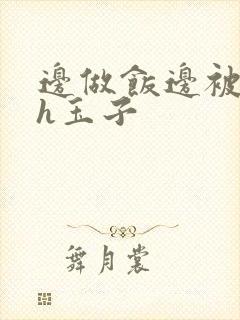 邊做飯邊被
h玉子
舞月裳